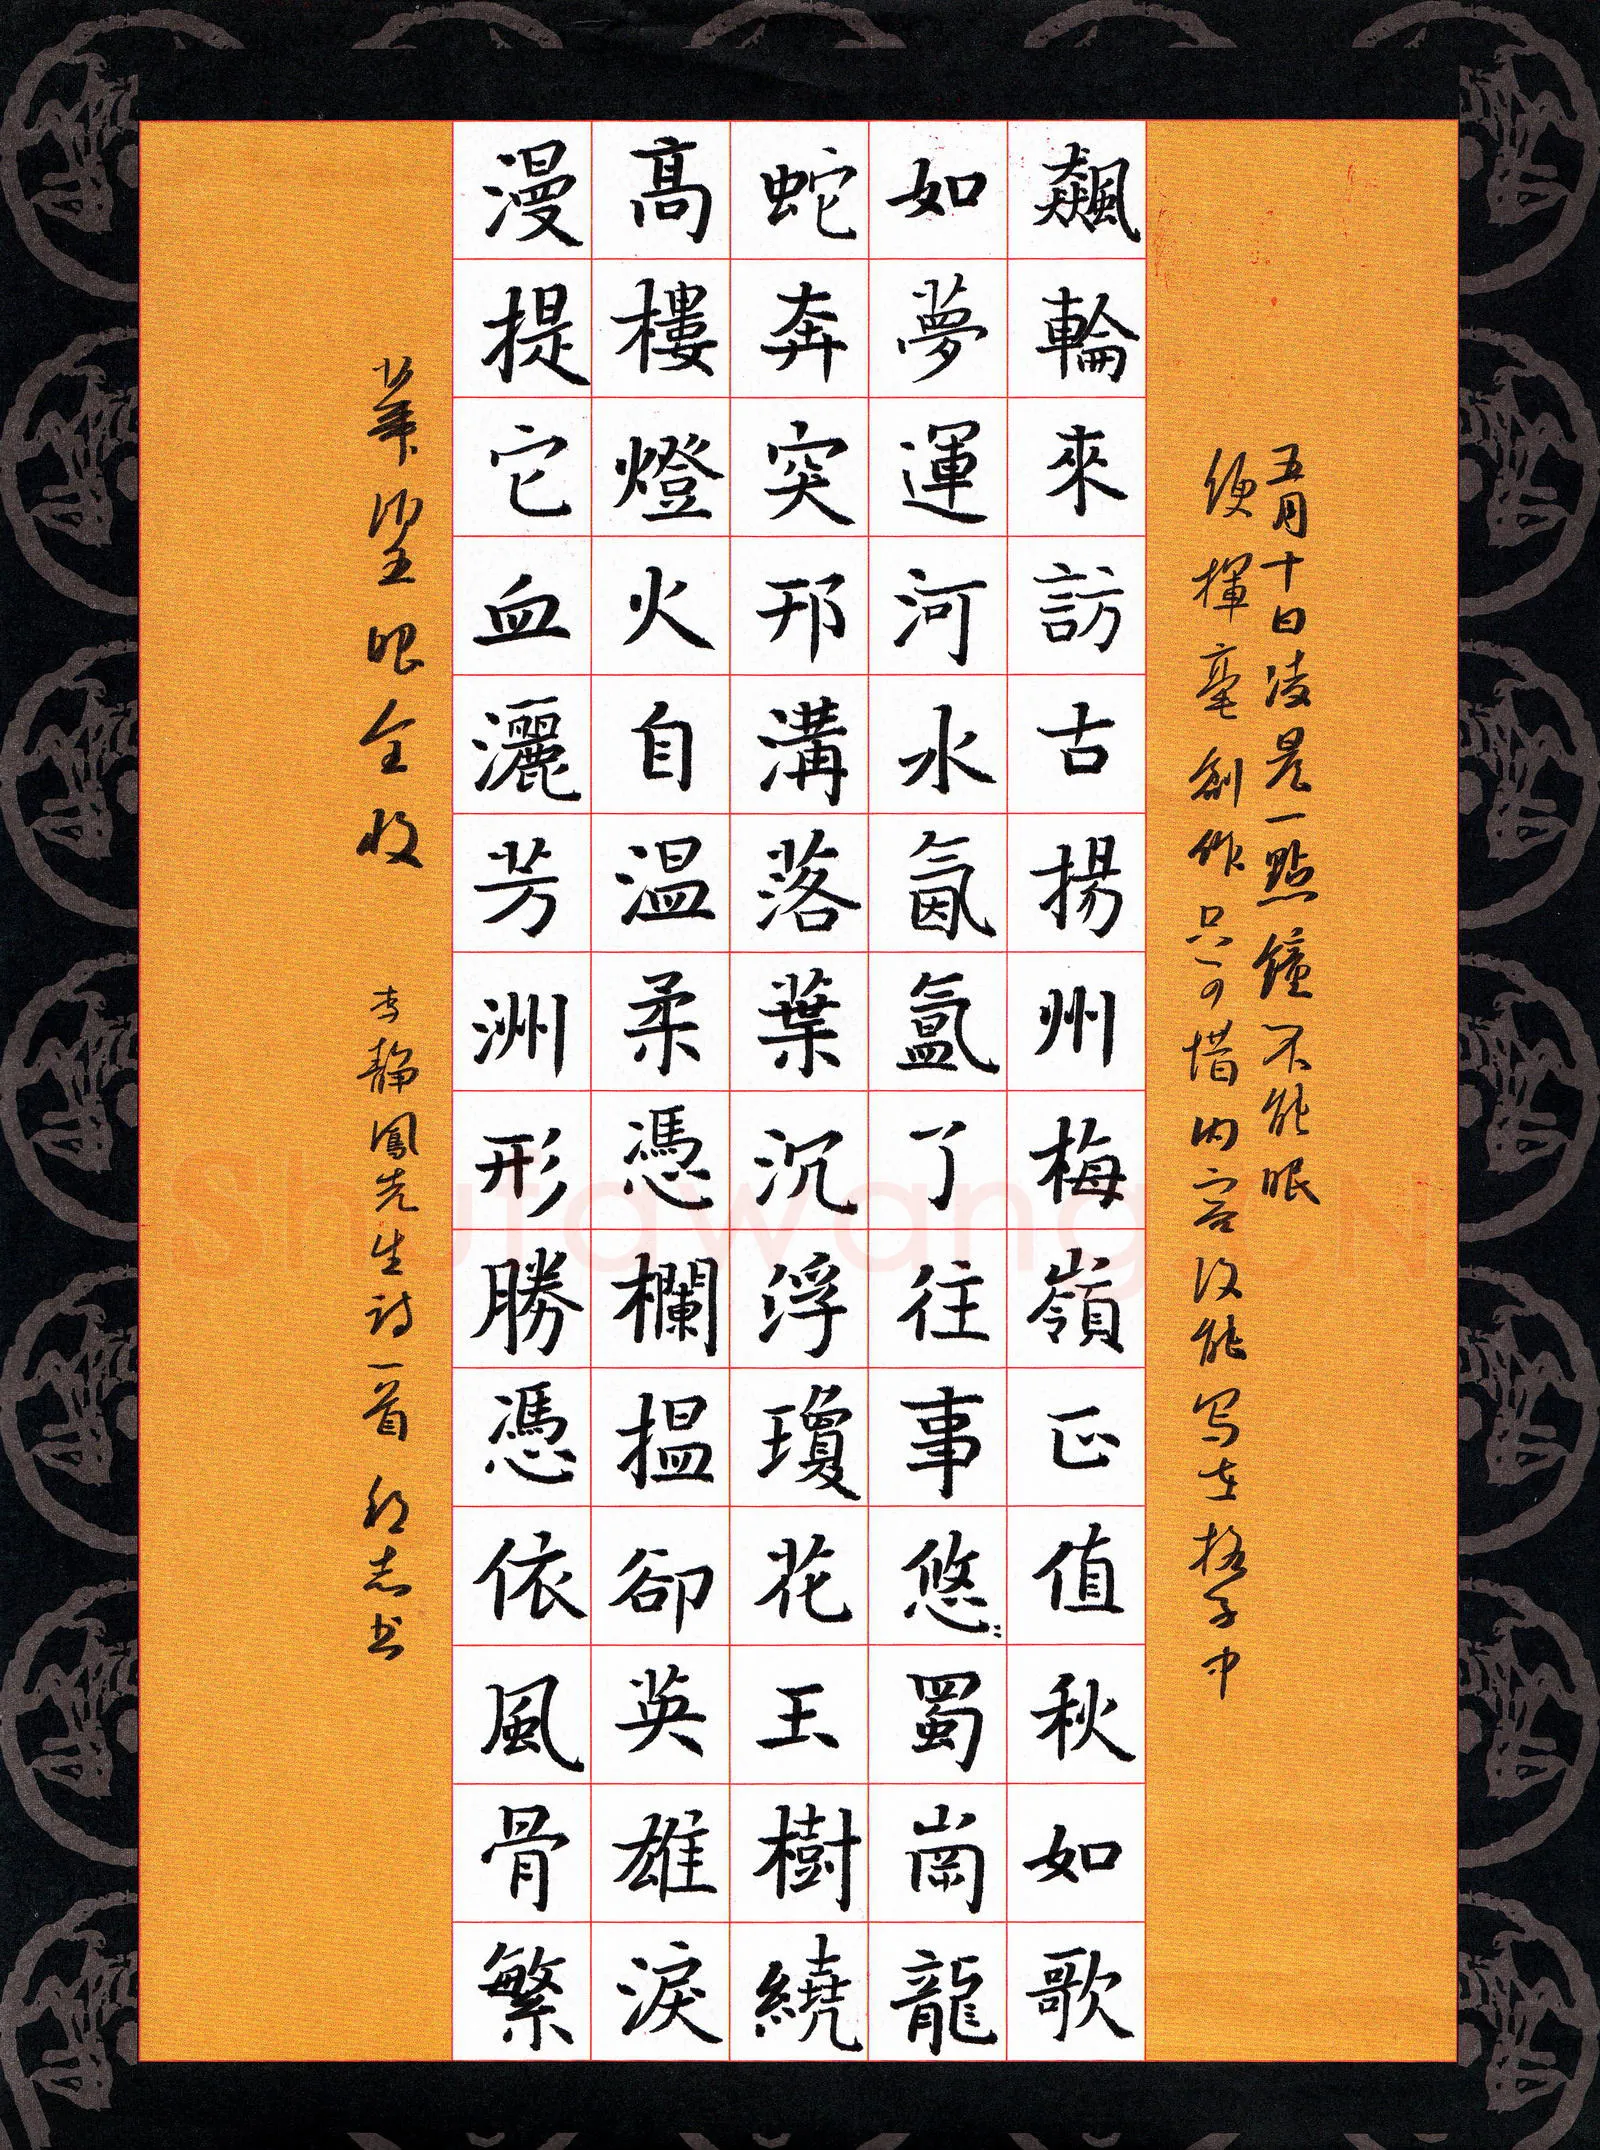 五月十日凌晨一點鐘不能眠
便揮毫創作只可惜内容没能写在格子中
飆輪來訪古揚州梅嶺正值秋如歌
如夢運河水氤氳了往事悠〻蜀崗龍
蛇奔突邗溝落葉沉浮瓊花玉樹繞
高樓燈火自温柔憑欄揾卻英雄淚
漫提它血灑芳洲形勝憑依風骨繁
華望眼全收
李静鳳先生詩一首 志书
Shufawang.CN